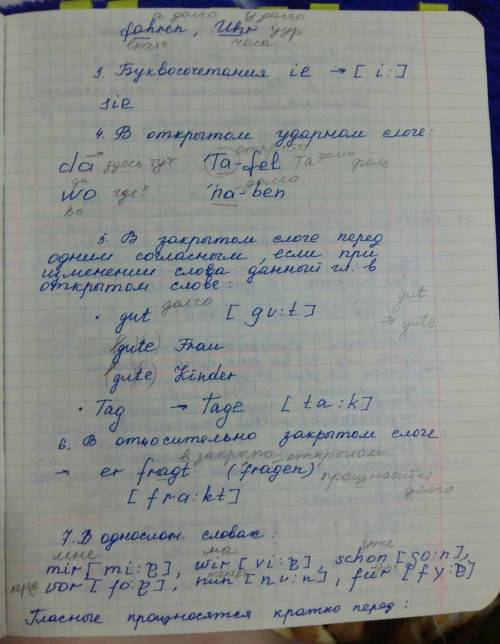 а долго у долго
fahren, Uhr уур
ехать часы
3. Буквосочетания ie → [i:]
sie
4. В открытом ударном слоге:
открыто
da здесь тут 'Ta-fel Та долго фель
да долго
wo где? 'ha-ben
во
5. В закрытом слоге перед
одним согласным, если при
изменении слова данный гл. в
открытом слове:
• gut долго [gu:t] gut
→ gute
(gute) Frau
(gute) Kinder
• Tag → Tage [ta:k]
6. В относительно закрытом слоге:
в закрыто открытом
→ er fragt (fragen) произносится
[fra:kt] долго
7. В однослож. словах:
мне мы уже
mir [mi:ɐ], wir [vi:ɐ], schon [ʃo:n],
перед для
vor [fo:ɐ], nun [nu:n], für [fy:ɐ]
Гласные произносятся кратко перед: